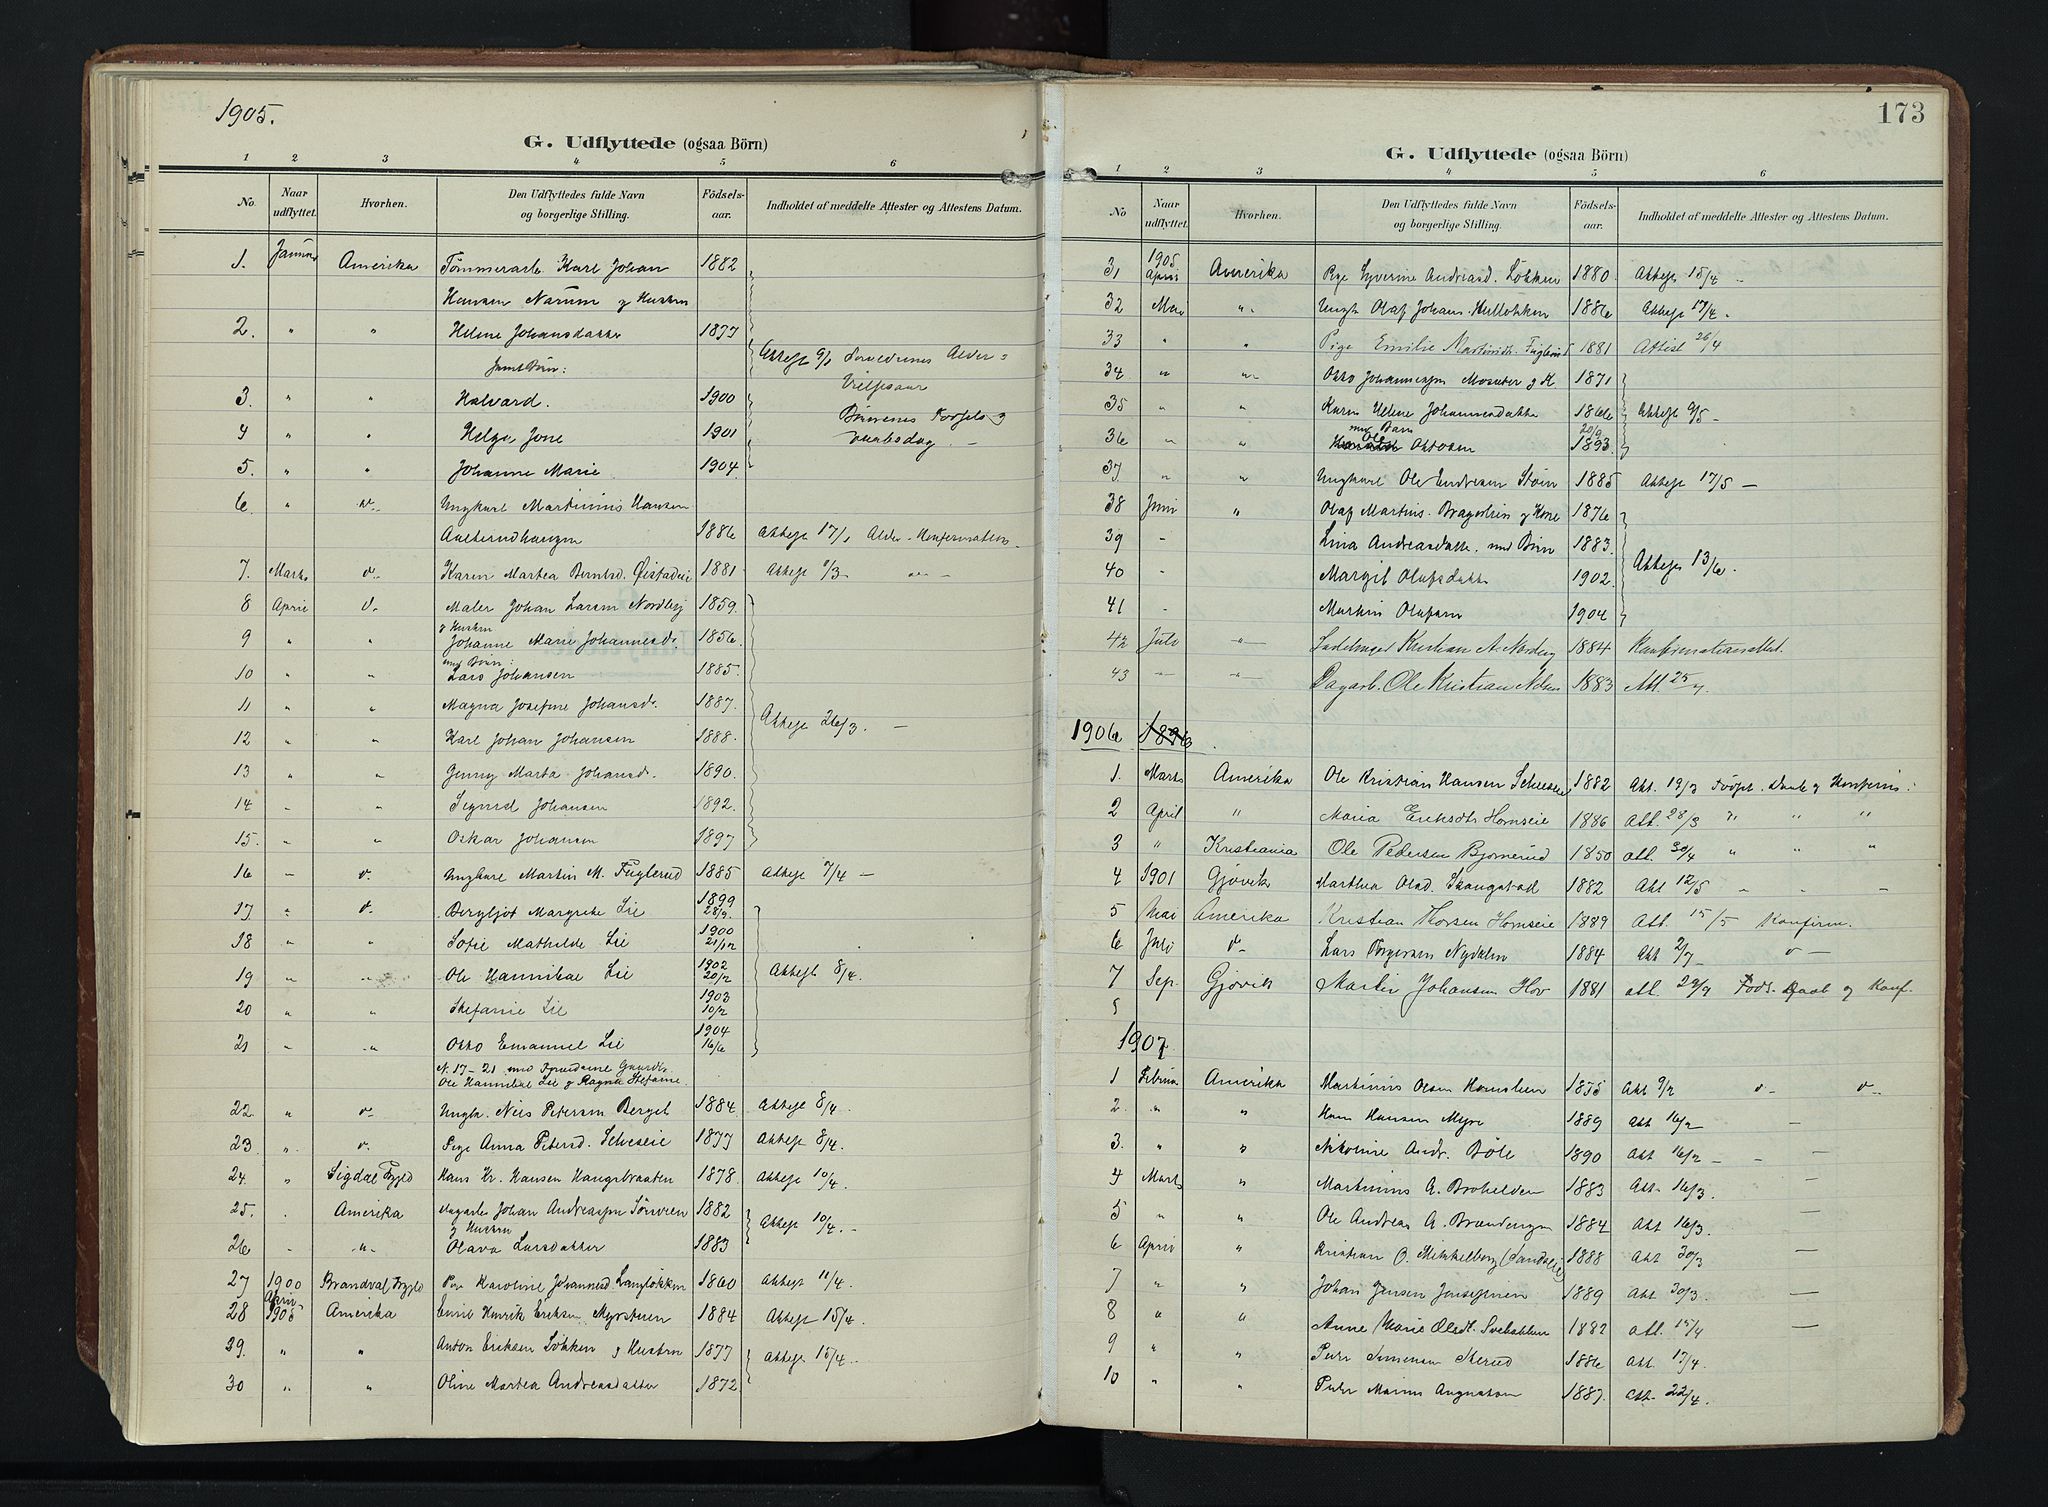 1905.
G. Udflyttede (ogsaa Börn)
1 2 3 4 5 6
No. Naar udflyttet. Hvorhen. Den Udflyttedes fulde Navn og borgerlige Stilling. Födsels-aar. Indholdet af meddelte Attester og Attestens Datum.
1. Januar Amerika Tömmerarb. Karl Johan 1882
Hansen Narum g Hustru
2. " " Helene Johansdatter 1877
samt Börn:
Attest 9/1 Forældrenes Alder
3. " " Halvard. 1900
4 " " Helga 1901
5. " " Johanne Marie 1904.
6. " Ungkarl Martinius Hansen
1886 Attest 17/1 Alder Konfirmation
7. Marts d. Karen Martea Berntsd. 1881 Attest /3
8 April d. Maler Johan Larsen Nordby 1859.
9 " " g Hustru Johanne Marie Johannesd. 1856.
10 " " med Börn: Lars Johansen 1885.
11 " " Magna Josefine Johansd. 1887.
Attest 26/3. –
12 " " Karl Johan Johansen 1888.
13 " " Jenny Marta Johansd. 1890.
14 " " Sigurd Johansen 1892.
15. " " Oskar Johansen 1897
16 – d. Ungkarl Martin M. Fuglerud 1885 Attest 7/4 –
17 " d. Bergljot Margrethe Lie 1899 28/9.
18 " " Sofie Mathilde Lie 1900 21/12
19 " " Ole Hannibal Lie 1902 20/12 Attest 8/4.
20 " " Stefanie Lie 1903 10/2
21 " " Otto Emanuel Lie 1904 16/6
N. 17–21 med Forældrene
Ole Hannibal Lie g Ragna Stefanie.
22. " d. Ungk. Nels Petersen Berget 1884 Attest 8/4.
23 " d. Pige Anna Petersd. 1877 Attest 8/4.
24. " Sigdal Hans Kr. Hansen Haugsbraaten 1878. Attest 10/4.
25. . Amerika Johan Andreassen 1882 Attest 10/4. –
26 " g Hustru Olava Larsdatter 1883
27 1900 Brandval Karoline Johannesd. Langlökken 1860 Attest 11/4.
28 April 1905 Amerika Emil Henrik Eriksen Myrsteen 1884 Attest 15/4.
29. " " Anton Eriksen Lökken g Hustru 1877 Attest 15/4.
30 " " Oline Martea Andreasdatter 1872
173
G. Udflyttede (ogsaa Börn)
1 2 3 4 5 6
No Naar udflyttet. Hvorhen. Den Udflyttedes fulde Navn og borgerlige Stilling. Födsels-aar. Indholdet af meddelte Attester og Attestens Datum.
31 1905 April Amerika Pige Syverine Andreasd. Lökken 1880 Attest 15/4 –
32 Mai " Ungk. Olaf Johans. 1886 Attest 17/4.
33 " " Pige Emilie Martinsdt. Fuglerud 1881 Attest 26/4
34 " " Otto Johannessen g K 1871
35 " " Karen Helene Johannesdatter 1866 Attest 9/5 –
36 " " med Barn Ole Ottosen 20/9 1893
37. " " Ungkarl Ole Andreasen 1885 Attest 17/5 –
38 Juni " Olaf Martins. g Kone 1876
39 – Lina Andreasdatt. med Börn 1883.
40 – Margit Olafsdatter 1902. Attest 13/6.
41 – Martin Olafsen 1904
42 Juli " Kristian A. Nordeng 1884 Konfirmationsattest.
43 " " Dagarb. Ole Kristian Nelsen 1883 Att. 25/7.
1906 1896
1. Marts Amerika Ole Kristian Hansen 1882 Att. 19/3 Födsel. Daab g Konfirm.
2 April " Maria Eriksdt. Hornseie 1886 Att. 28/3 " " "
3 " Kristiania Ole Pedersen Bjornerud 1850 att. 30/4 " " "
4 1901 Gjövik Marthea Olsd. Skaugstad 1882 Att 12/5 " . –
5 Mai Amerika Kristian Thorsen Hornseie 1889 Att. 15/5 Konfirm.
6 Juli d– Lars Torgersen Nydalen 1884 Att 2/7 – d –
7 Sep. Gjövik Martin Johansen Hov 1881 att. 29/9 Föds. Daab og Konf.
1907
1 Februar Amerika Martinius Olsen 1875 Att 9/2 d– d–
2. " " Hans Hansen Myre 1889 Att 16/2 –
3. " " Nikoline Andr. Böle 1890 Att 16/2 – – –
4 Marts " Martinius A. Broholden 1883 Att. 16/3. –
5 " " Ole Andreas A. Brændengen 1884 Att 16/3. –
6 April " Kristian O. Mikkelborg (Sandveie) 1888 Att 30/3 –
7 " " Johan Jensen 1889 Att 30/3. –
8 " " Anne Marie Olsdt. 1882 att. 15/4 –
9 " " Peder Simensen Skerud 1886 Att. 17/4.
10 " " Peder Marius Augustsen 1887. Att. 22/4.